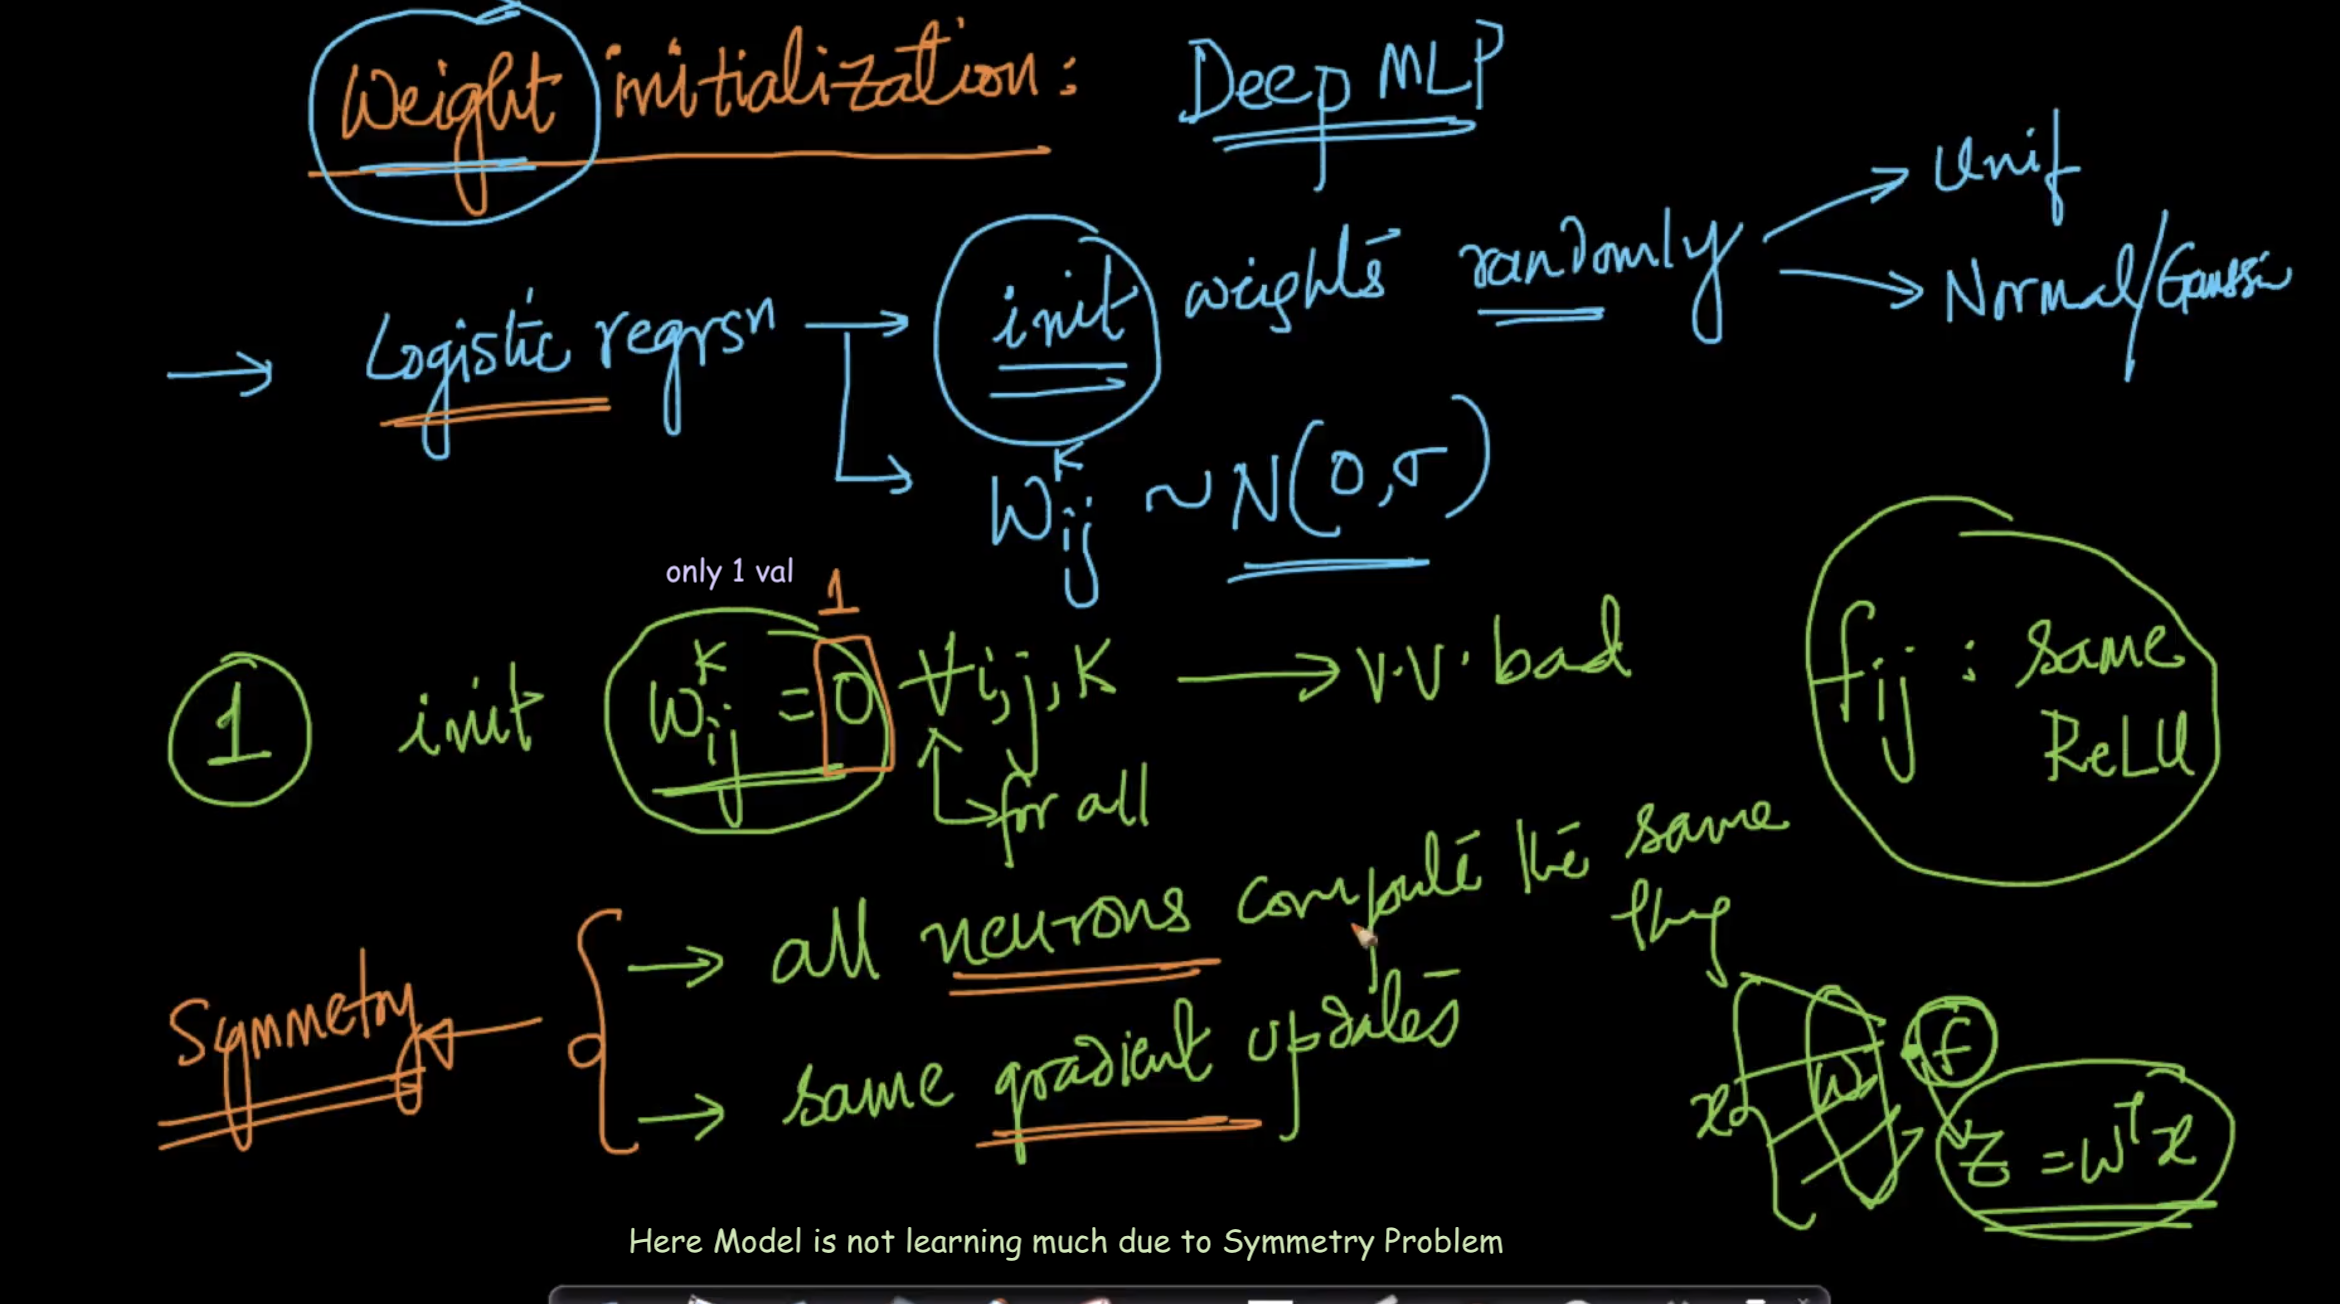 Weight initialization: Deep MLP
Unif
→ Logistic regrsn → init weights randomly
Normal/Gaussi
W^k_ij ~ N(0,σ)
only 1 val
1
1 init W^k_ij = 0 ∀i,j,k → v.v. bad
for all
fij : same
ReLU
→ all neurons compute the same
thg
Symmetry
→ same gradient updates
x W f
z = W^T x
Here Model is not learning much due to Symmetry Problem